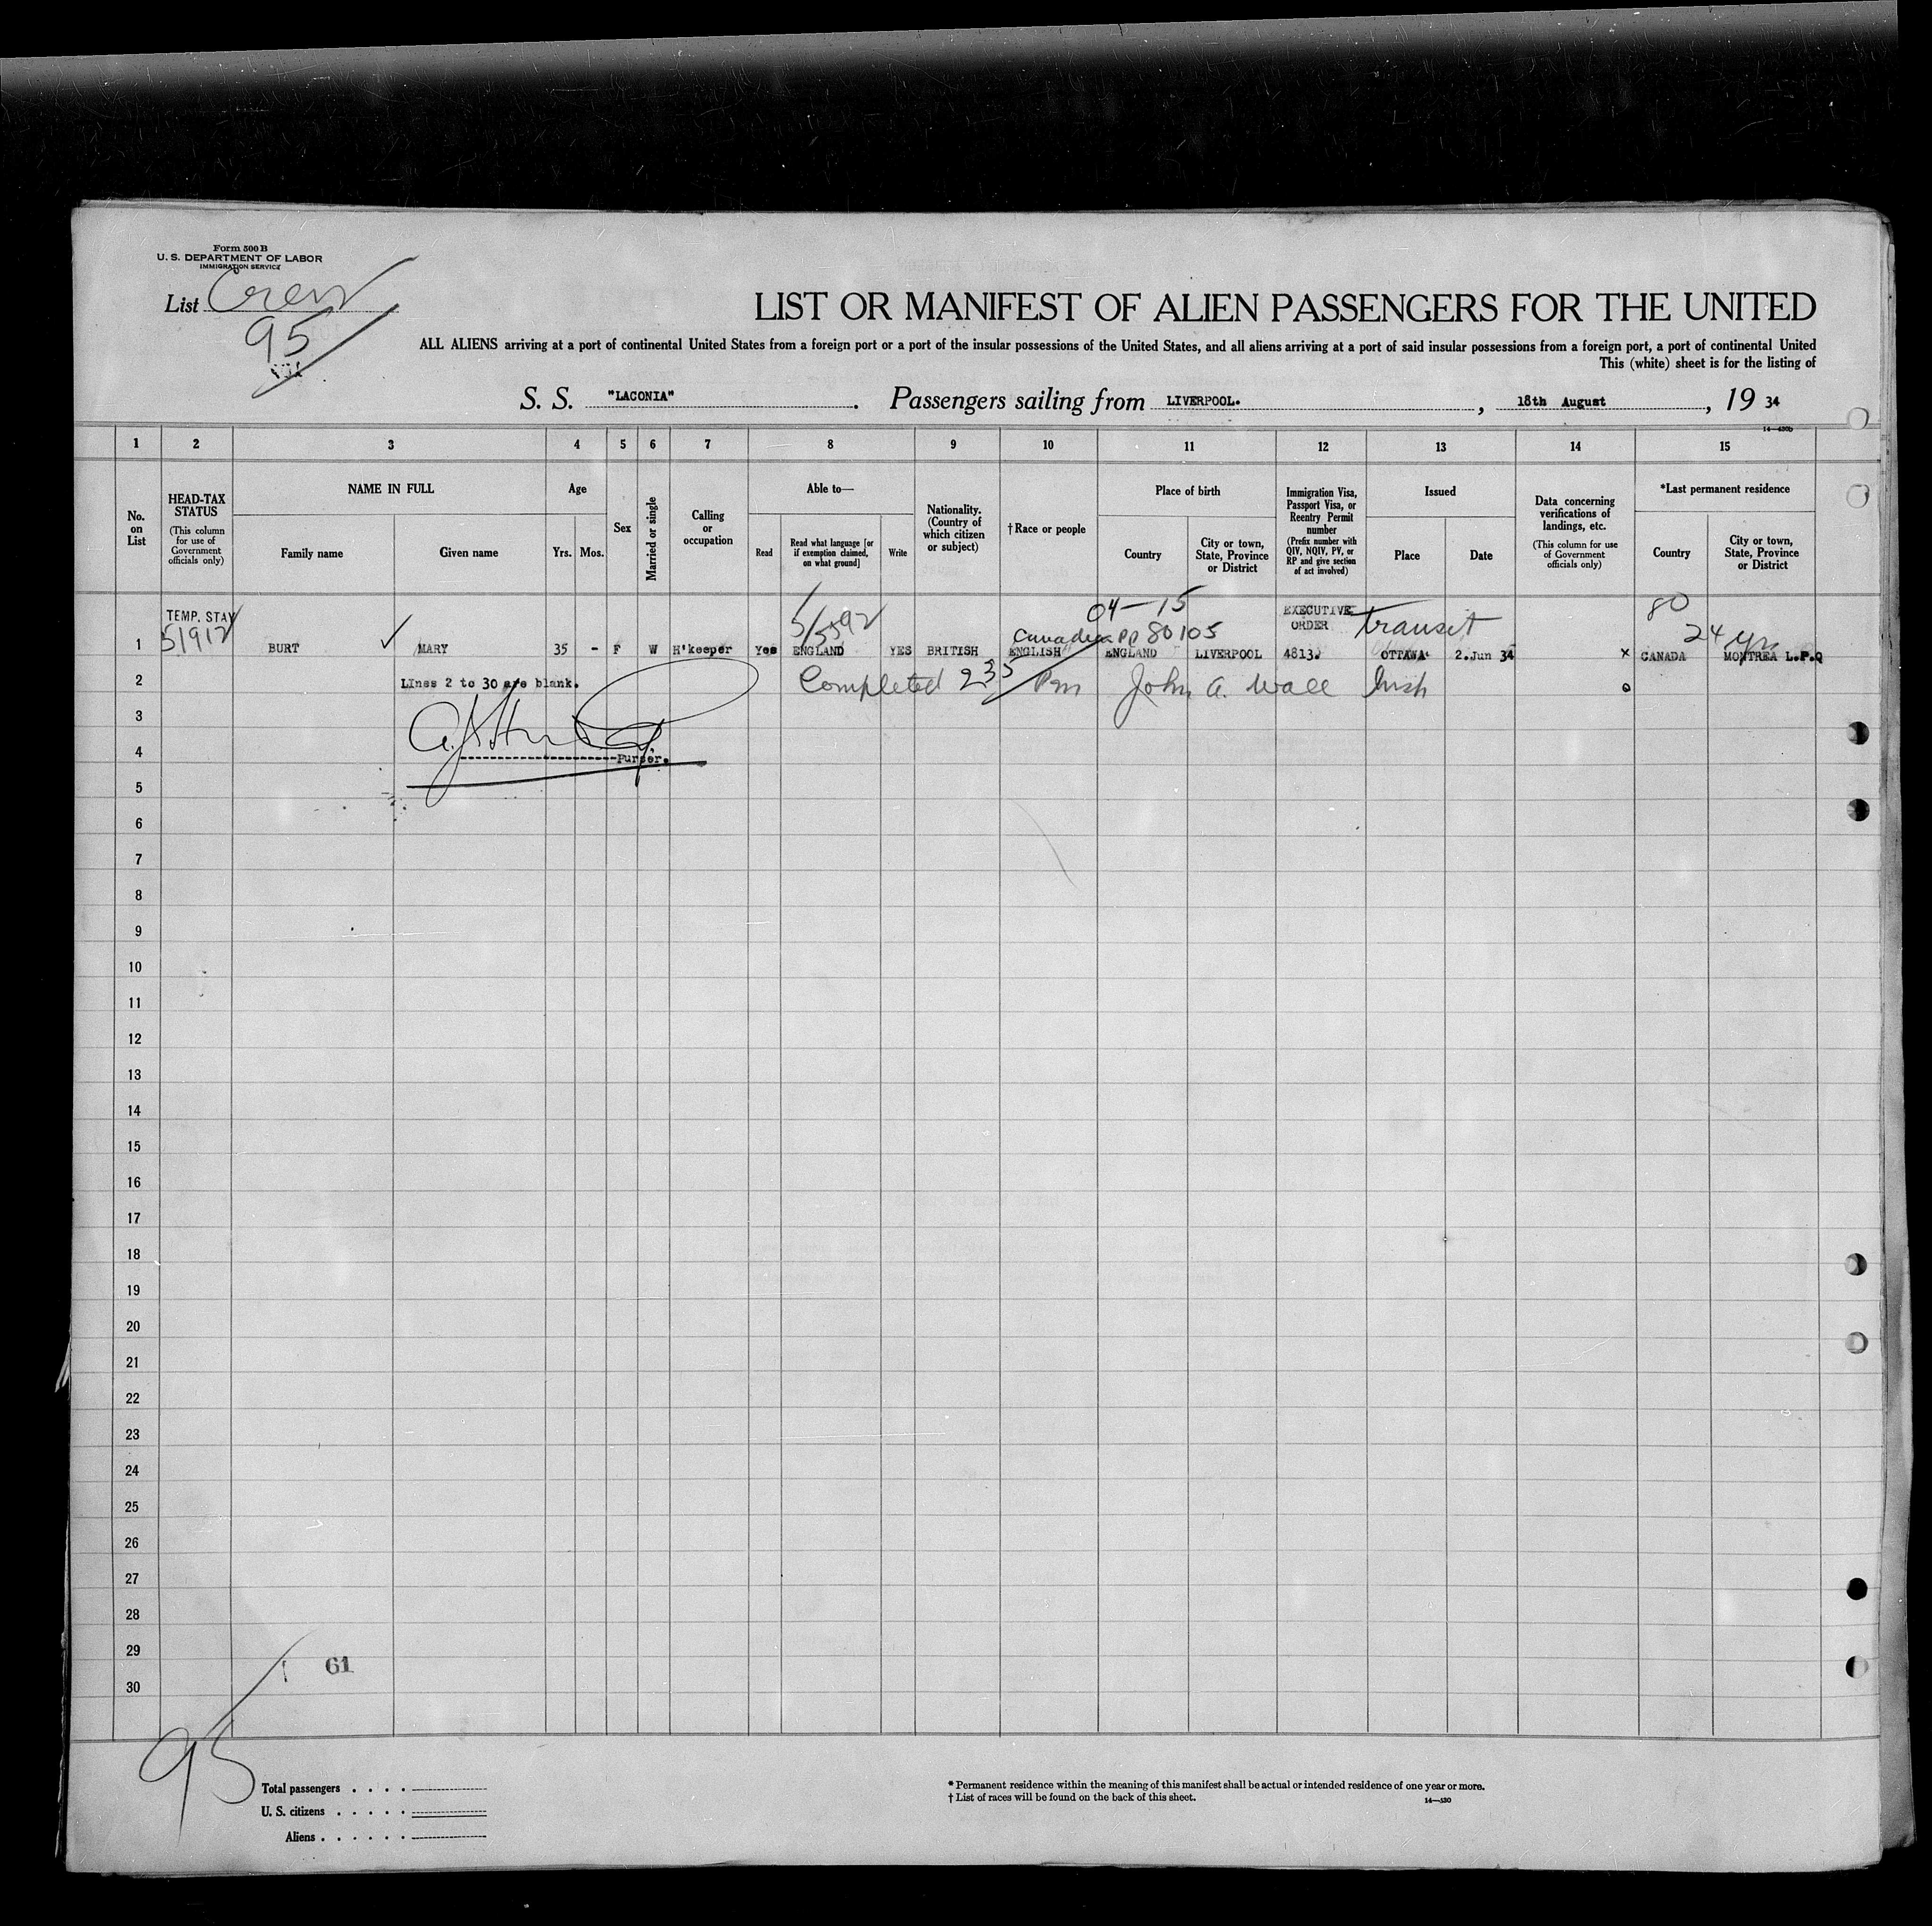 Form 500 B
U. S. DEPARTMENT OF LABOR
IMMIGRATION SERVICE
List Crew
95
LIST OR MANIFEST OF ALIEN PASSENGERS FOR THE UNITED
ALL ALIENS arriving at a port of continental United States from a foreign port or a port of the insular possessions of the United States, and all aliens arriving at a port of said insular possessions from a foreign port, a port of continental United
This (white) sheet is for the listing of
S. S. "LACONIA". Passengers sailing from LIVERPOOL., 18th August, 19 34
1 2 3 4 5 6 7 8 9 10 11 12 13 14 15
No. on List
HEAD-TAX STATUS
(This column for use of Government officials only)
NAME IN FULL
Family name
Given name
Age
Yrs.
Mos.
Sex
Married or single
Calling or occupation
Able to—
Read
Read what language [or if exemption claimed, on what ground]
Write
Nationality. (Country of which citizen or subject)
†Race or people
Place of birth
Country
City or town, State, Province or District
Immigration Visa, Passport Visa, or Reentry Permit number
(Prefix number with QIV, NQIV, PV, or RP and give section of act involved)
Issued
Place
Date
Data concerning verifications of landings, etc.
(This column for use of Government officials only)
*Last permanent residence
Country
City or town, State, Province or District
TEMP. STAY 04-15 EXECUTIVE ORDER transit 80
51912 PP 80105 24 yrs
1 BURT MARY 35 - F W H'keeper Yes ENGLAND YES BRITISH ENGLISH ENGLAND LIVERPOOL 4813. OTTAWA 2.Jun 34 x CANADA MONTREA L.P.Q
2 LInes 2 to 30 are blank. Completed 235 Pm John A. Wall Insp
3
4 Purser.
5
6
7
8
9
10
11
12
13
14
15
16
17
18
19
20
21
22
23
24
25
26
27
28
29
61
30
95
Total passengers . . . .
U. S. citizens . . . . .
Aliens . . . . . .
* Permanent residence within the meaning of this manifest shall be actual or intended residence of one year or more.
† List of races will be found on the back of this sheet.
14—530